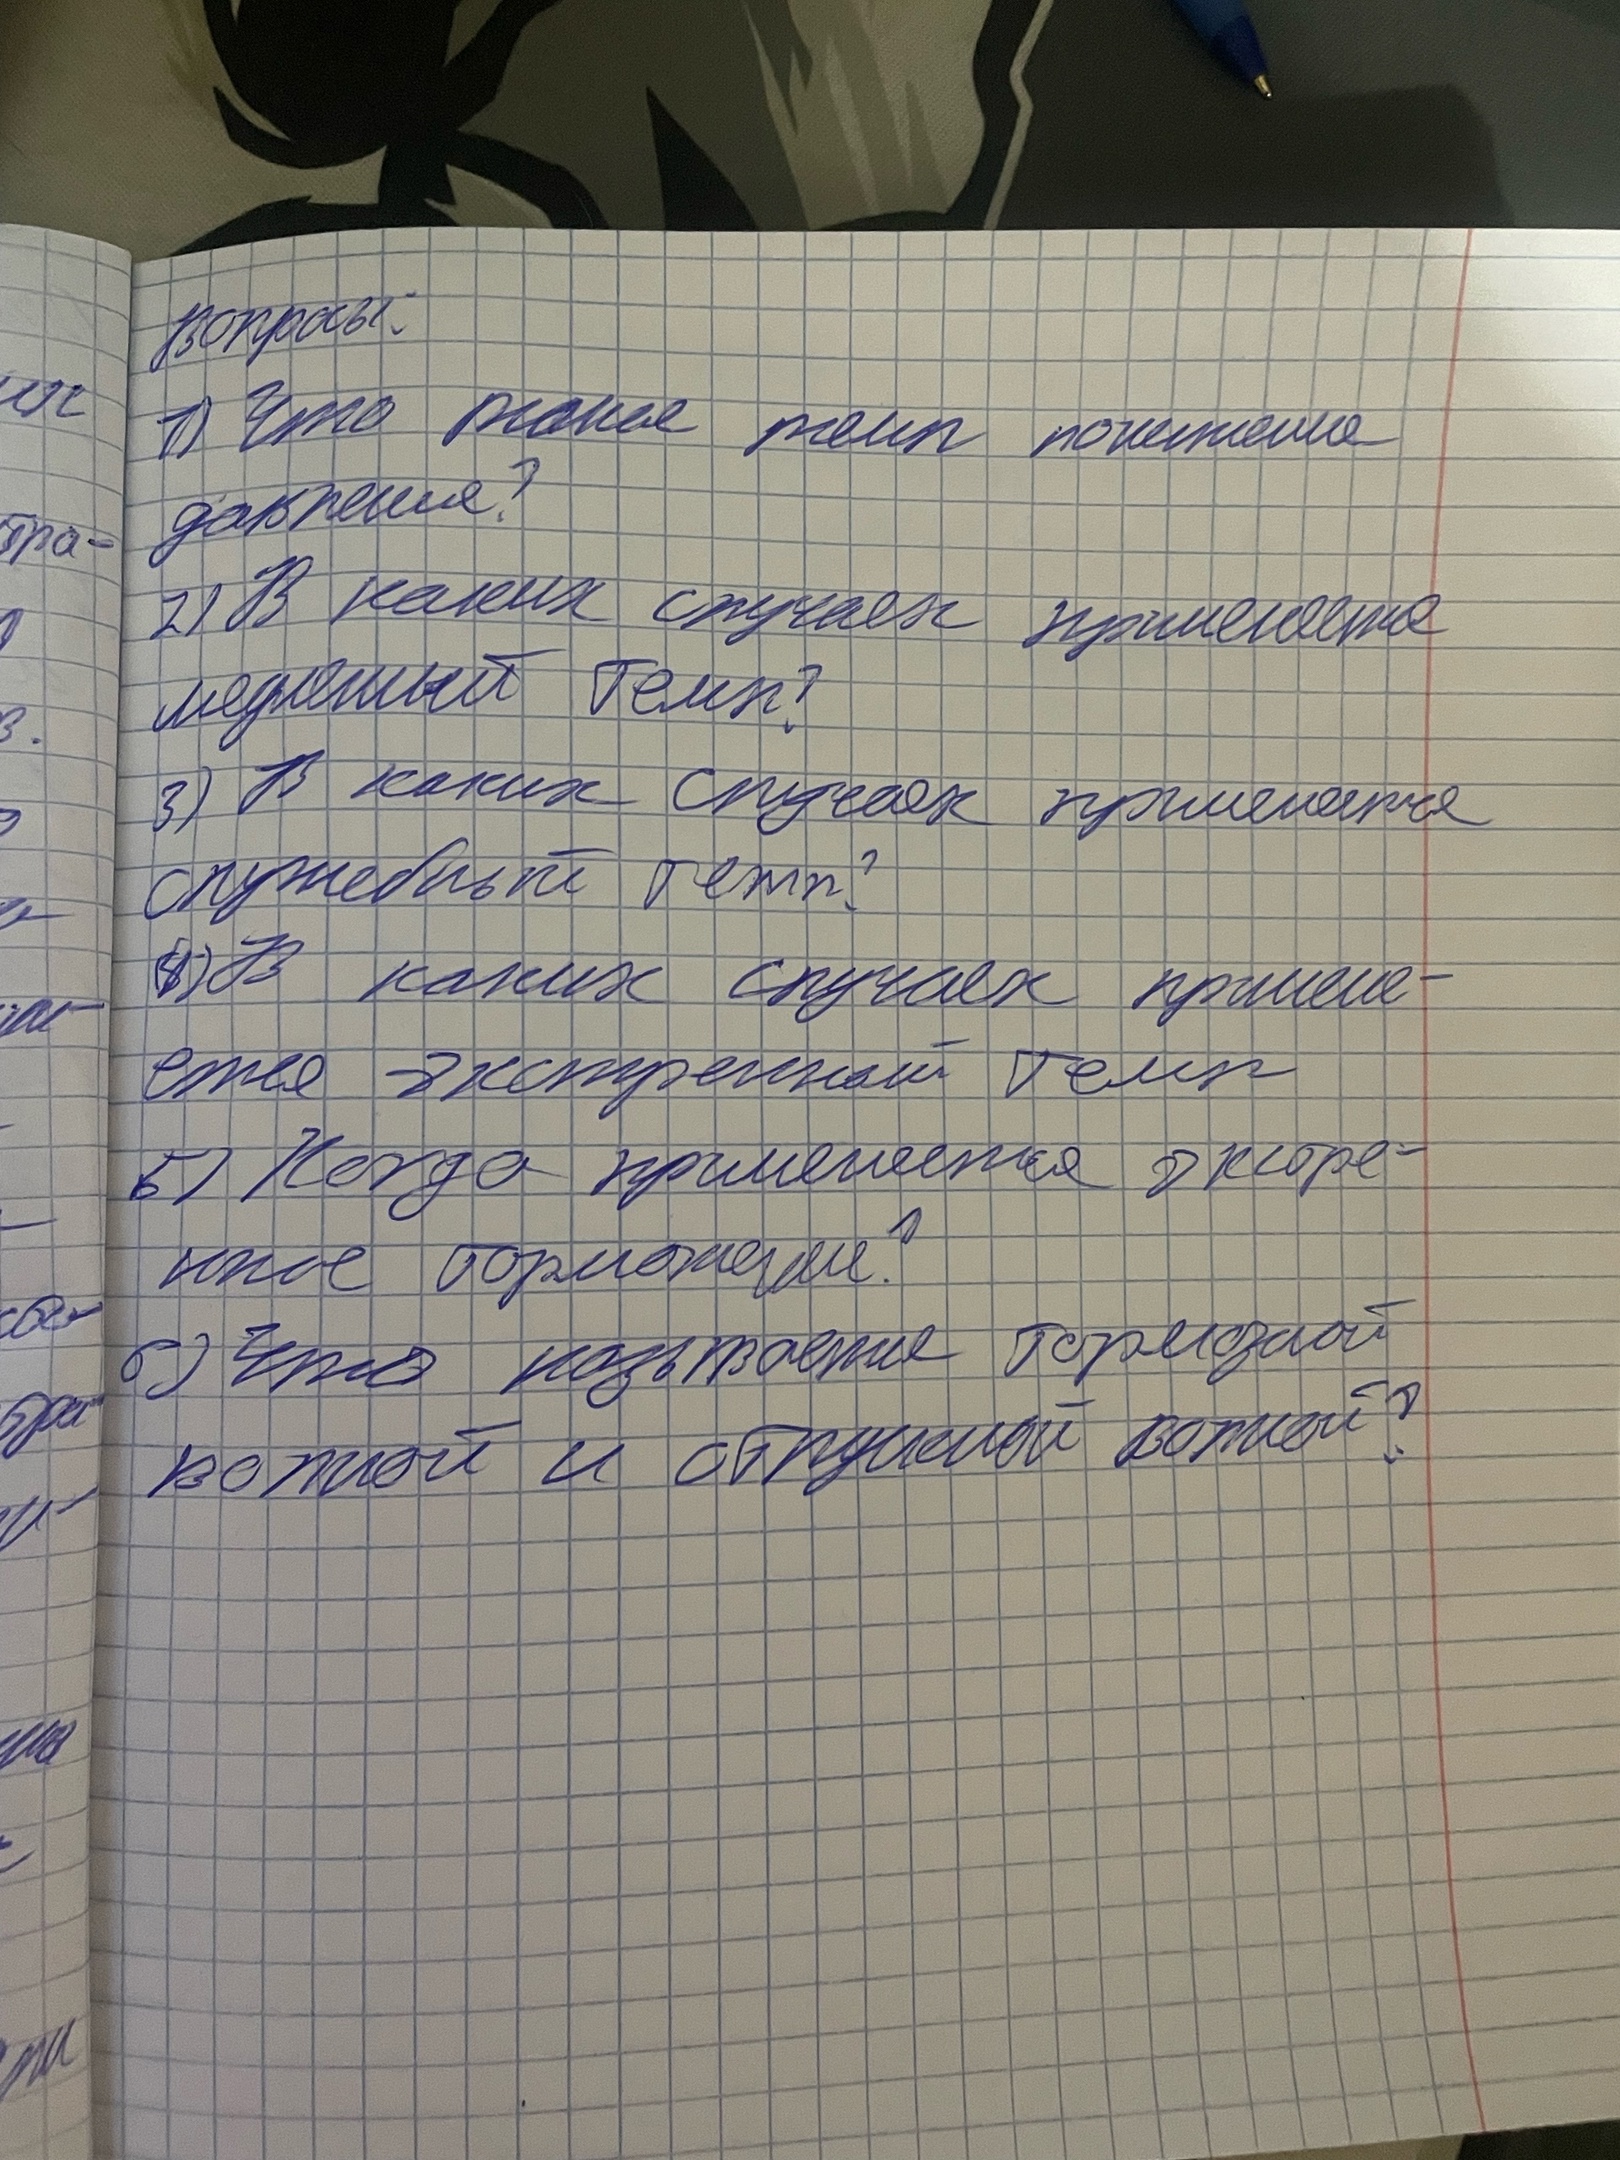 Вопросы:
1) Что такое темп понижения
давления?
2) В каких случаях применяется
медленный темп?
3) В каких случаях применятся
служебный темп?
4) В каких случаях приме-
ется экстренный темп
5) Когда применяется экстре-
нное торможение?
6) Что называется тормозной
волной и отпускной волной?